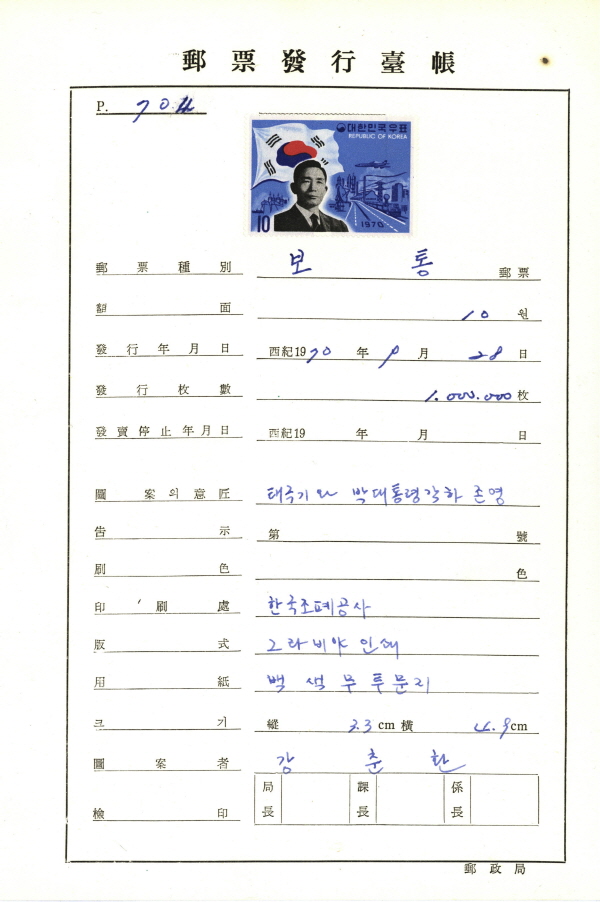 郵票發行臺帳
P. 704
대한민국우표
REPUBLIC OF KOREA
10
1970
郵票種別 보통 郵票
額面 10 원
發行年月日 西紀1970年 9月 28日
發行枚數 1.000.000枚
發賣停止年月日 西紀19 年 月 日
圖案의意匠 태극기와 박대통령각하 존영
告示 第 號
刷色 色
印刷處 한국조폐공사
版式 그라비야 인쇄
用紙 백색무투문지
크기 縱 3.3cm 橫 4.9cm
圖案者 강춘환
檢印 局長 課長 係長
郵政局